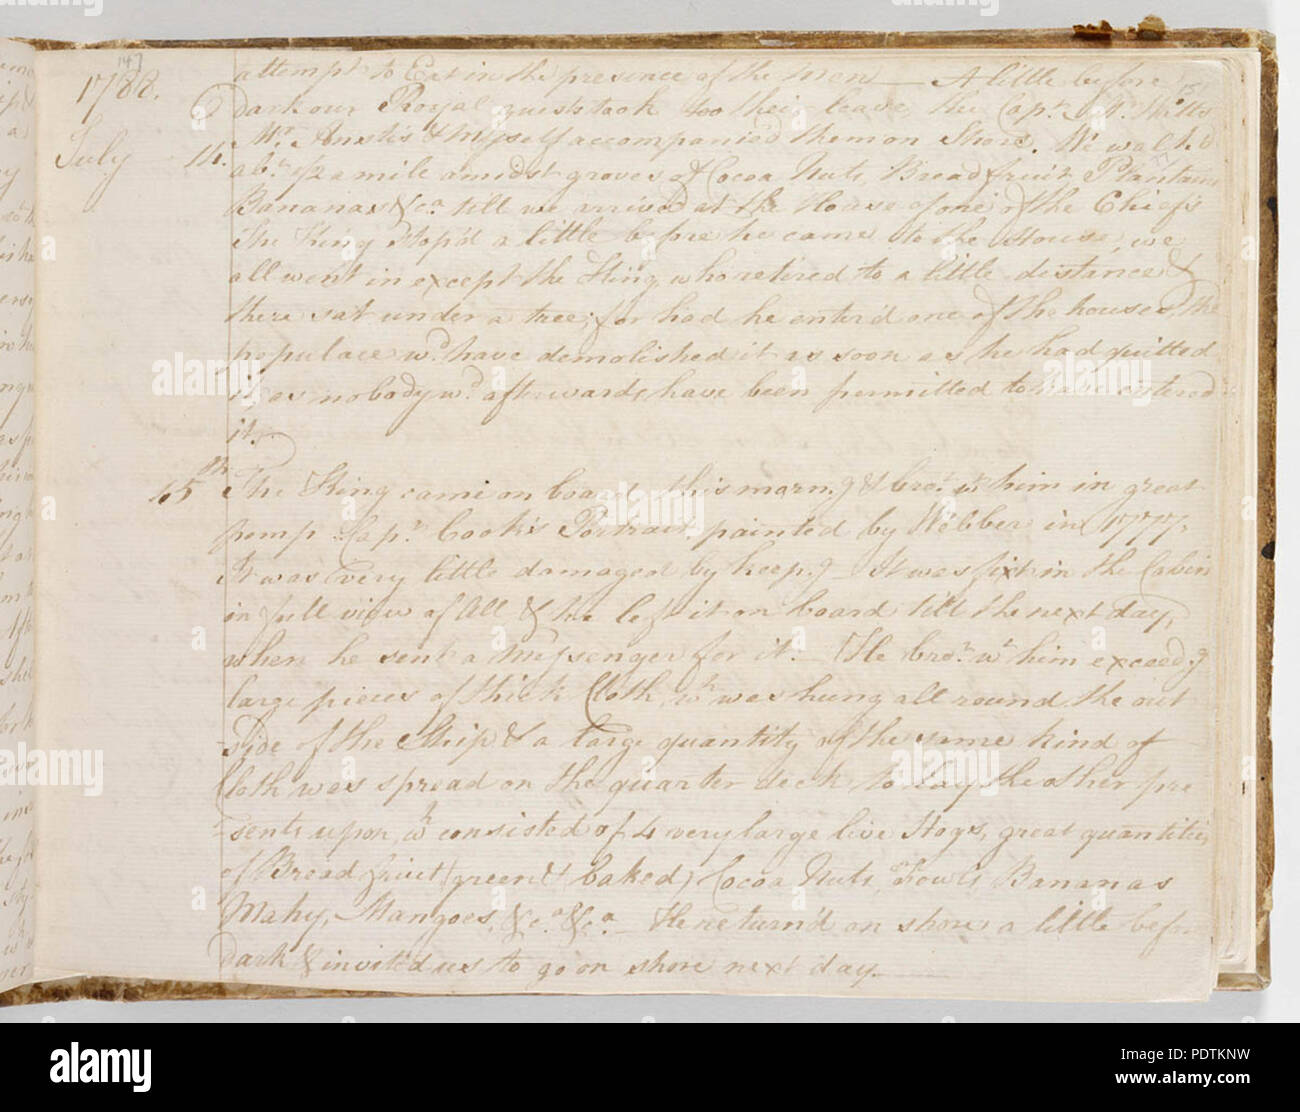 147
1788.
July 14.
attempt to Eat in the presence of the men — A little before
151
dark our Royal guests took to their leave the Capn. Mr. Watts
Mr. Anstis & Myself accompanied them on Shore. We walk'd
abt. ½ a mile amidst groves of Cocoa Nuts, Bread fruit Plantains
Bananas &ca. till we arrived at the House of one of the Chiefs
The King stop'd a little before he came to the House, we
all went in except the King, who retired to a little distance &
there sat under a tree; for had he enter'd one of the houses the
populace wd. have demolished it as soon as he had quitted
it, as nobody wd. afterwards have been permitted to have entered
it.
15th The King came on board this morng. & brot. wt. him in great
pomp Capn. Cook's Portrait painted by Webber in 1777,
It was very little damaged by keepg. — It was fixt in the Cabin
in full view of All & he left it on board till the next day,
when he sent a Messenger for it. — He brot. wt. him exceedg.
large pieces of thick Cloth, wh. was hung all round the out
side of the Ship & a large quantity of the same kind of
Cloth was spread on the quarter deck, to lay the other pre
-sents upon, wh. consisted of 4 very large live Hogs, great quantities
of Bread fruit (green & baked) Cocoa Nuts, Fowls, Bananas
Mahy, Mangoes, &ca. &ca. — He return'd on shore a little before
dark & invited us to go on shore next day. —
alamy
Image ID: PDTKNW
www.alamy.com